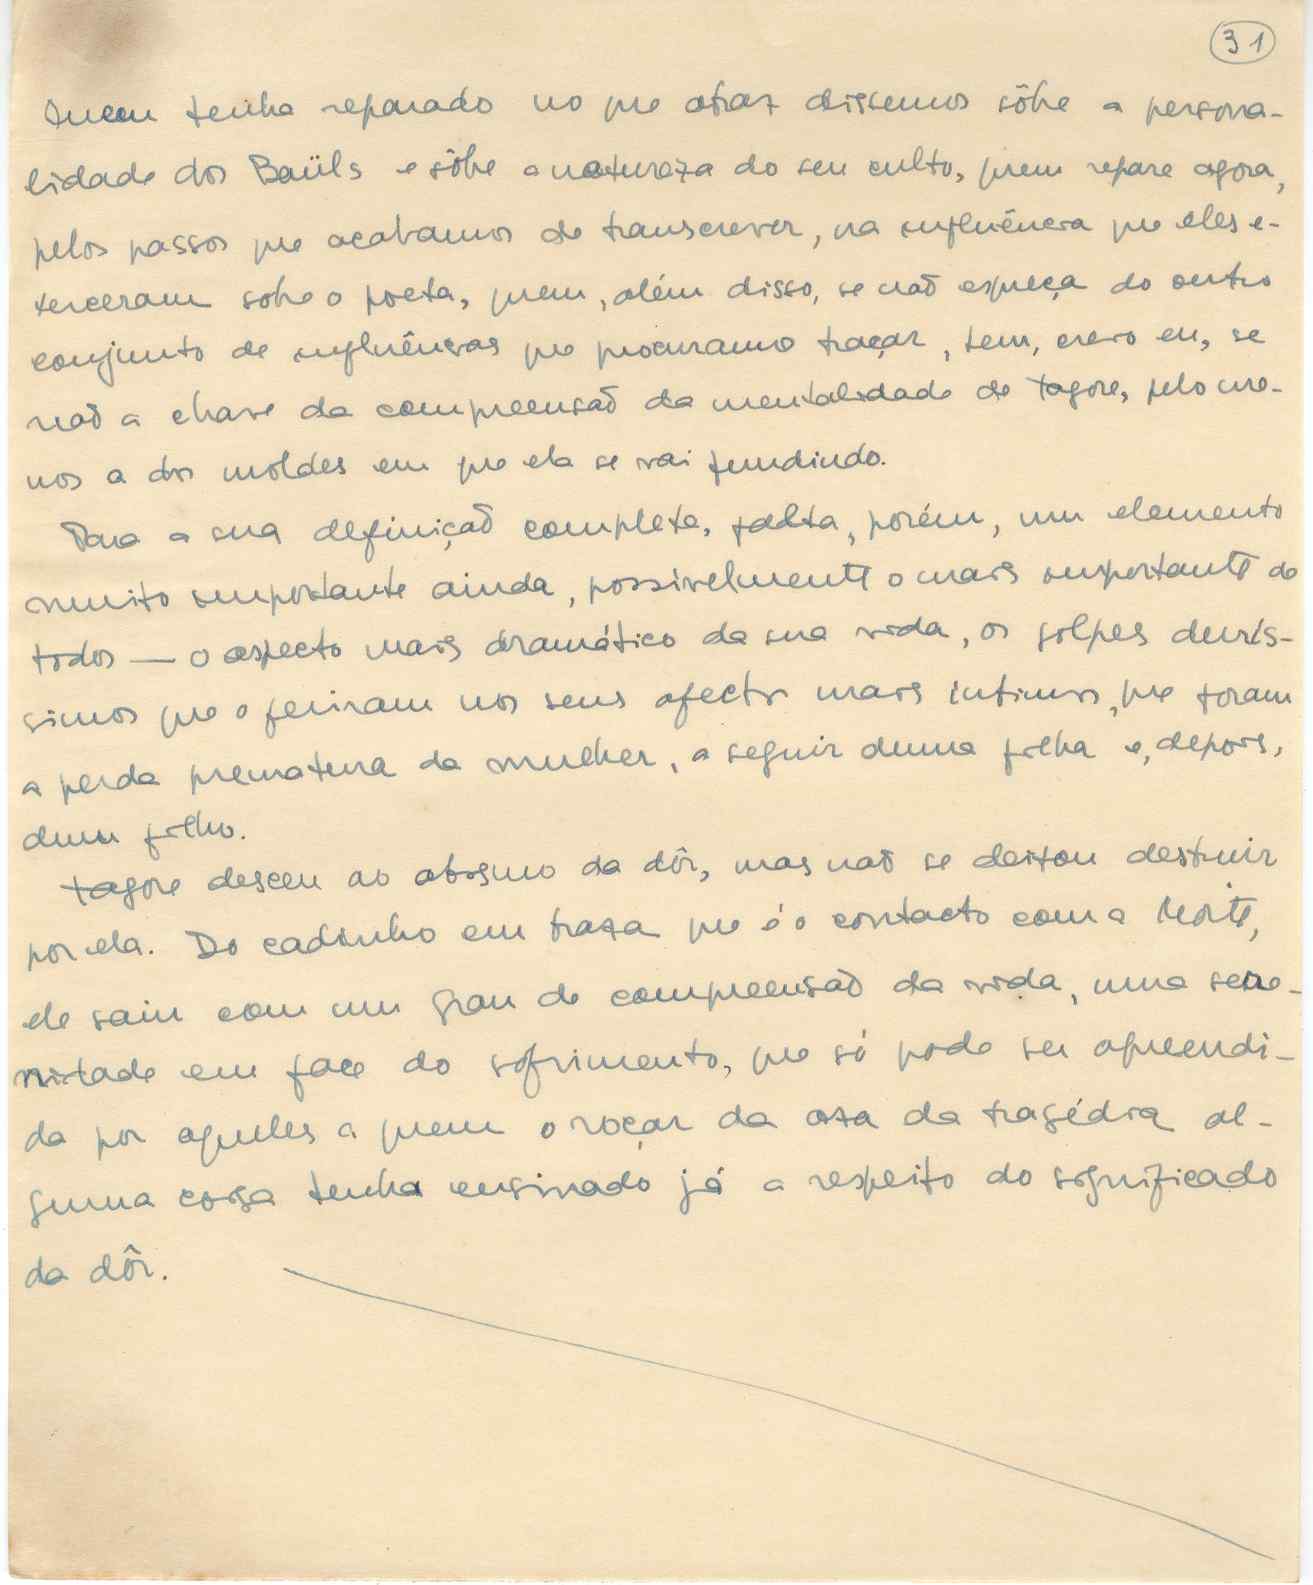 31
Quem tenha reparado no que atraz dissemos sôbre a persona-
lidade dos Baüls e sôbre a natureza do seu culto, quem repare agora,
pelos passos que acabamos de transcrever, na influência que êles e-
xerceram sobre o poeta, quem, além disso, se não esqueça do outro
conjunto de influências que procuramo traçar, tem, creio eu, se
não a chave da compreensão da mentalidade de Tagore, pelo me-
nos a dos moldes em que ela se vai fundindo.
Para a sua definição completa, falta, porém, um elemento
muito importante ainda, possivelmente o mais importante de
todos — o aspecto mais dramático da sua vida, os golpes durís-
simos que o feriram nos seus afectos mais íntimos, que foram
a perda prematura da mulher, a seguir duma filha e, depois,
dum filho.
Tagore desceu ao abismo da dôr, mas não se deixou destruir
por ela. Do cadinho em braza que é o contacto com a Morte,
ele saiu com um grau de compreensão da vida, uma sere-
nidade em face do sofrimento, que só pode ser apreendi-
da por aqueles a quem o roçar da aza da tragédia al-
guma coisa tenha ensinado já a respeito do significado
da dôr.